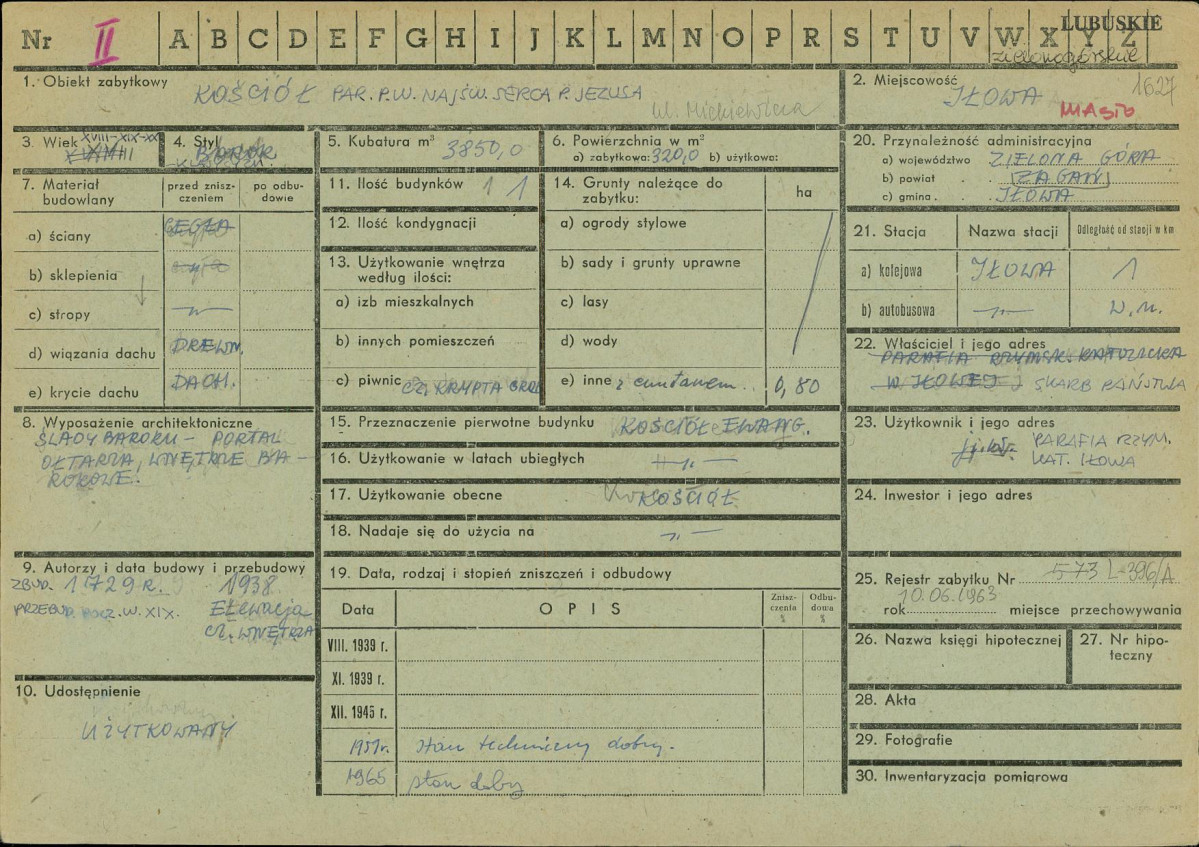 Nr II A B C D E F G H I J K L M N O P R S T U V W X Y Z
LUBUSKIE
zielonogórskie
1. Obiekt zabytkowy
KOŚCIÓŁ PAR. P.W. NAJŚW. SERCA P. JEZUSA
ul. Mickiewicza
2. Miejscowość
IŁOWA
1627
MIASTO
3. Wiek XVIII-XIX-XX
4. Styl
BAROK
5. Kubatura m³ 3850,0
6. Powierzchnia w m²
a) zabytkowa: 320,0 b) użytkowa:
20. Przynależność administracyjna
a) województwo ZIELONA GÓRA
b) powiat ŻAGAŃ
c) gmina IŁOWA
7. Materiał budowlany
przed zniszczeniem
po odbudowie
a) ściany CEGŁA
b) sklepienia
c) stropy —„—
d) wiązania dachu DREWN.
e) krycie dachu DACH.
11. Ilość budynków 1 1
12. Ilość kondygnacji
13. Użytkowanie wnętrza według ilości:
a) izb mieszkalnych
b) innych pomieszczeń
c) piwnic CZ. KRYPTA GROB
14. Grunty należące do zabytku:
ha
a) ogrody stylowe
b) sady i grunty uprawne
c) lasy
d) wody
e) inne z cmentarzem.. 0,80
21. Stacja
Nazwa stacji
Odległość od stacji w km
a) kolejowa IŁOWA 1
b) autobusowa —„— w.m.
22. Właściciel i jego adres
PARAFIA RZYMSK. KATOLICKA
W IŁOWEJ SKARB PAŃSTWA
8. Wyposażenie architektoniczne
ŚLADY BAROKU – PORTAL
OŁTARZA, WNĘTRZE BA-
ROKOWE.
15. Przeznaczenie pierwotne budynku KOŚCIÓŁ EWANG.
16. Użytkowanie w latach ubiegłych —„—
17. Użytkowanie obecne KOŚCIÓŁ
18. Nadaje się do użycia na —„—
23. Użytkownik i jego adres
PARAFIA RZYM.
KAT. IŁOWA
24. Inwestor i jego adres
9. Autorzy i data budowy i przebudowy
ZBUD. 1729 R. 1938
PRZEBUD. POCZ. W. XIX. Elewacja
CZ. WNĘTRZA
19. Data, rodzaj i stopień zniszczeń i odbudowy
Data
OPIS
Zniszczenia %
Odbudowa %
VIII. 1939 r.
XI. 1939 r.
XII. 1945 r.
1957r. stan techniczny dobry.
1965 stan dobry
25. Rejestr zabytku Nr 573 L-396/A
10.06.1963
rok miejsce przechowywania
26. Nazwa księgi hipotecznej
27. Nr hipoteczny
10. Udostępnienie
UŻYTKOWANY
28. Akta
29. Fotografie
30. Inwentaryzacja pomiarowa